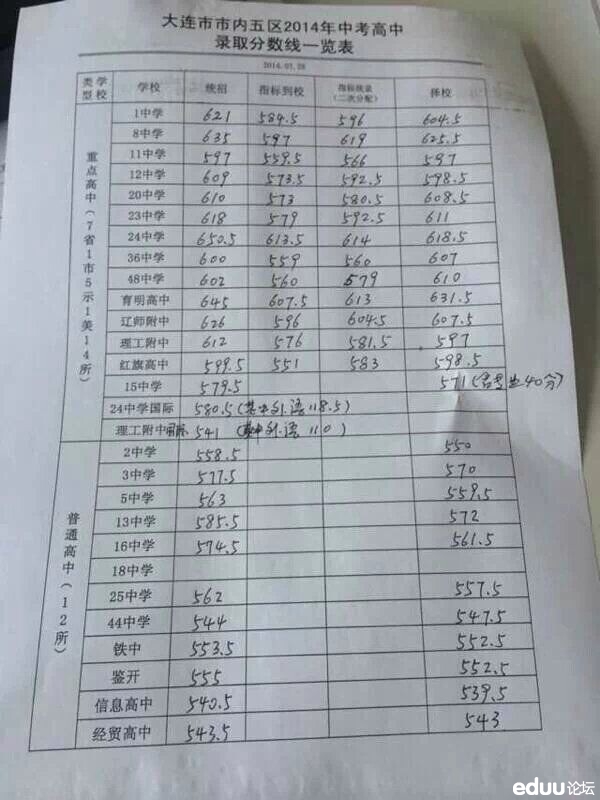 大连市市内五区2014年中考高中
录取分数线一览表
2014.07.28
类型 学校 学校 统招 指标到校 指标统量（二次分配） 择校
重点高中（7省1市5示1美14所）
1中学 621 584.5 596 604.5
8中学 635 597 619 625.5
11中学 597 559.5 566 597
12中学 609 573.5 592.5 598.5
20中学 610 573 580.5 608.5
23中学 618 579 592.5 611
24中学 650.5 613.5 614 618.5
36中学 600 559 560 607
48中学 602 560 579 610
育明高中 645 607.5 613 631.5
辽师附中 626 596 604.5 607.5
理工附中 612 576 581.5 597
红旗高中 599.5 551 583 598.5
15中学 579.5 571(含专业40分)
24中学国际 580.5(其中外语118.5)
理工附中国际 541 (其中外语110)
普通高中（12所）
2中学 558.5 550
3中学 577.5 570
5中学 563 559.5
13中学 585.5 572
16中学 574.5 561.5
18中学
25中学 562 557.5
44中学 544 547.5
铁中 553.5 552.5
鉴开 555 552.5
信息高中 540.5 539.5
经贸高中 543.5 543
eduu论坛